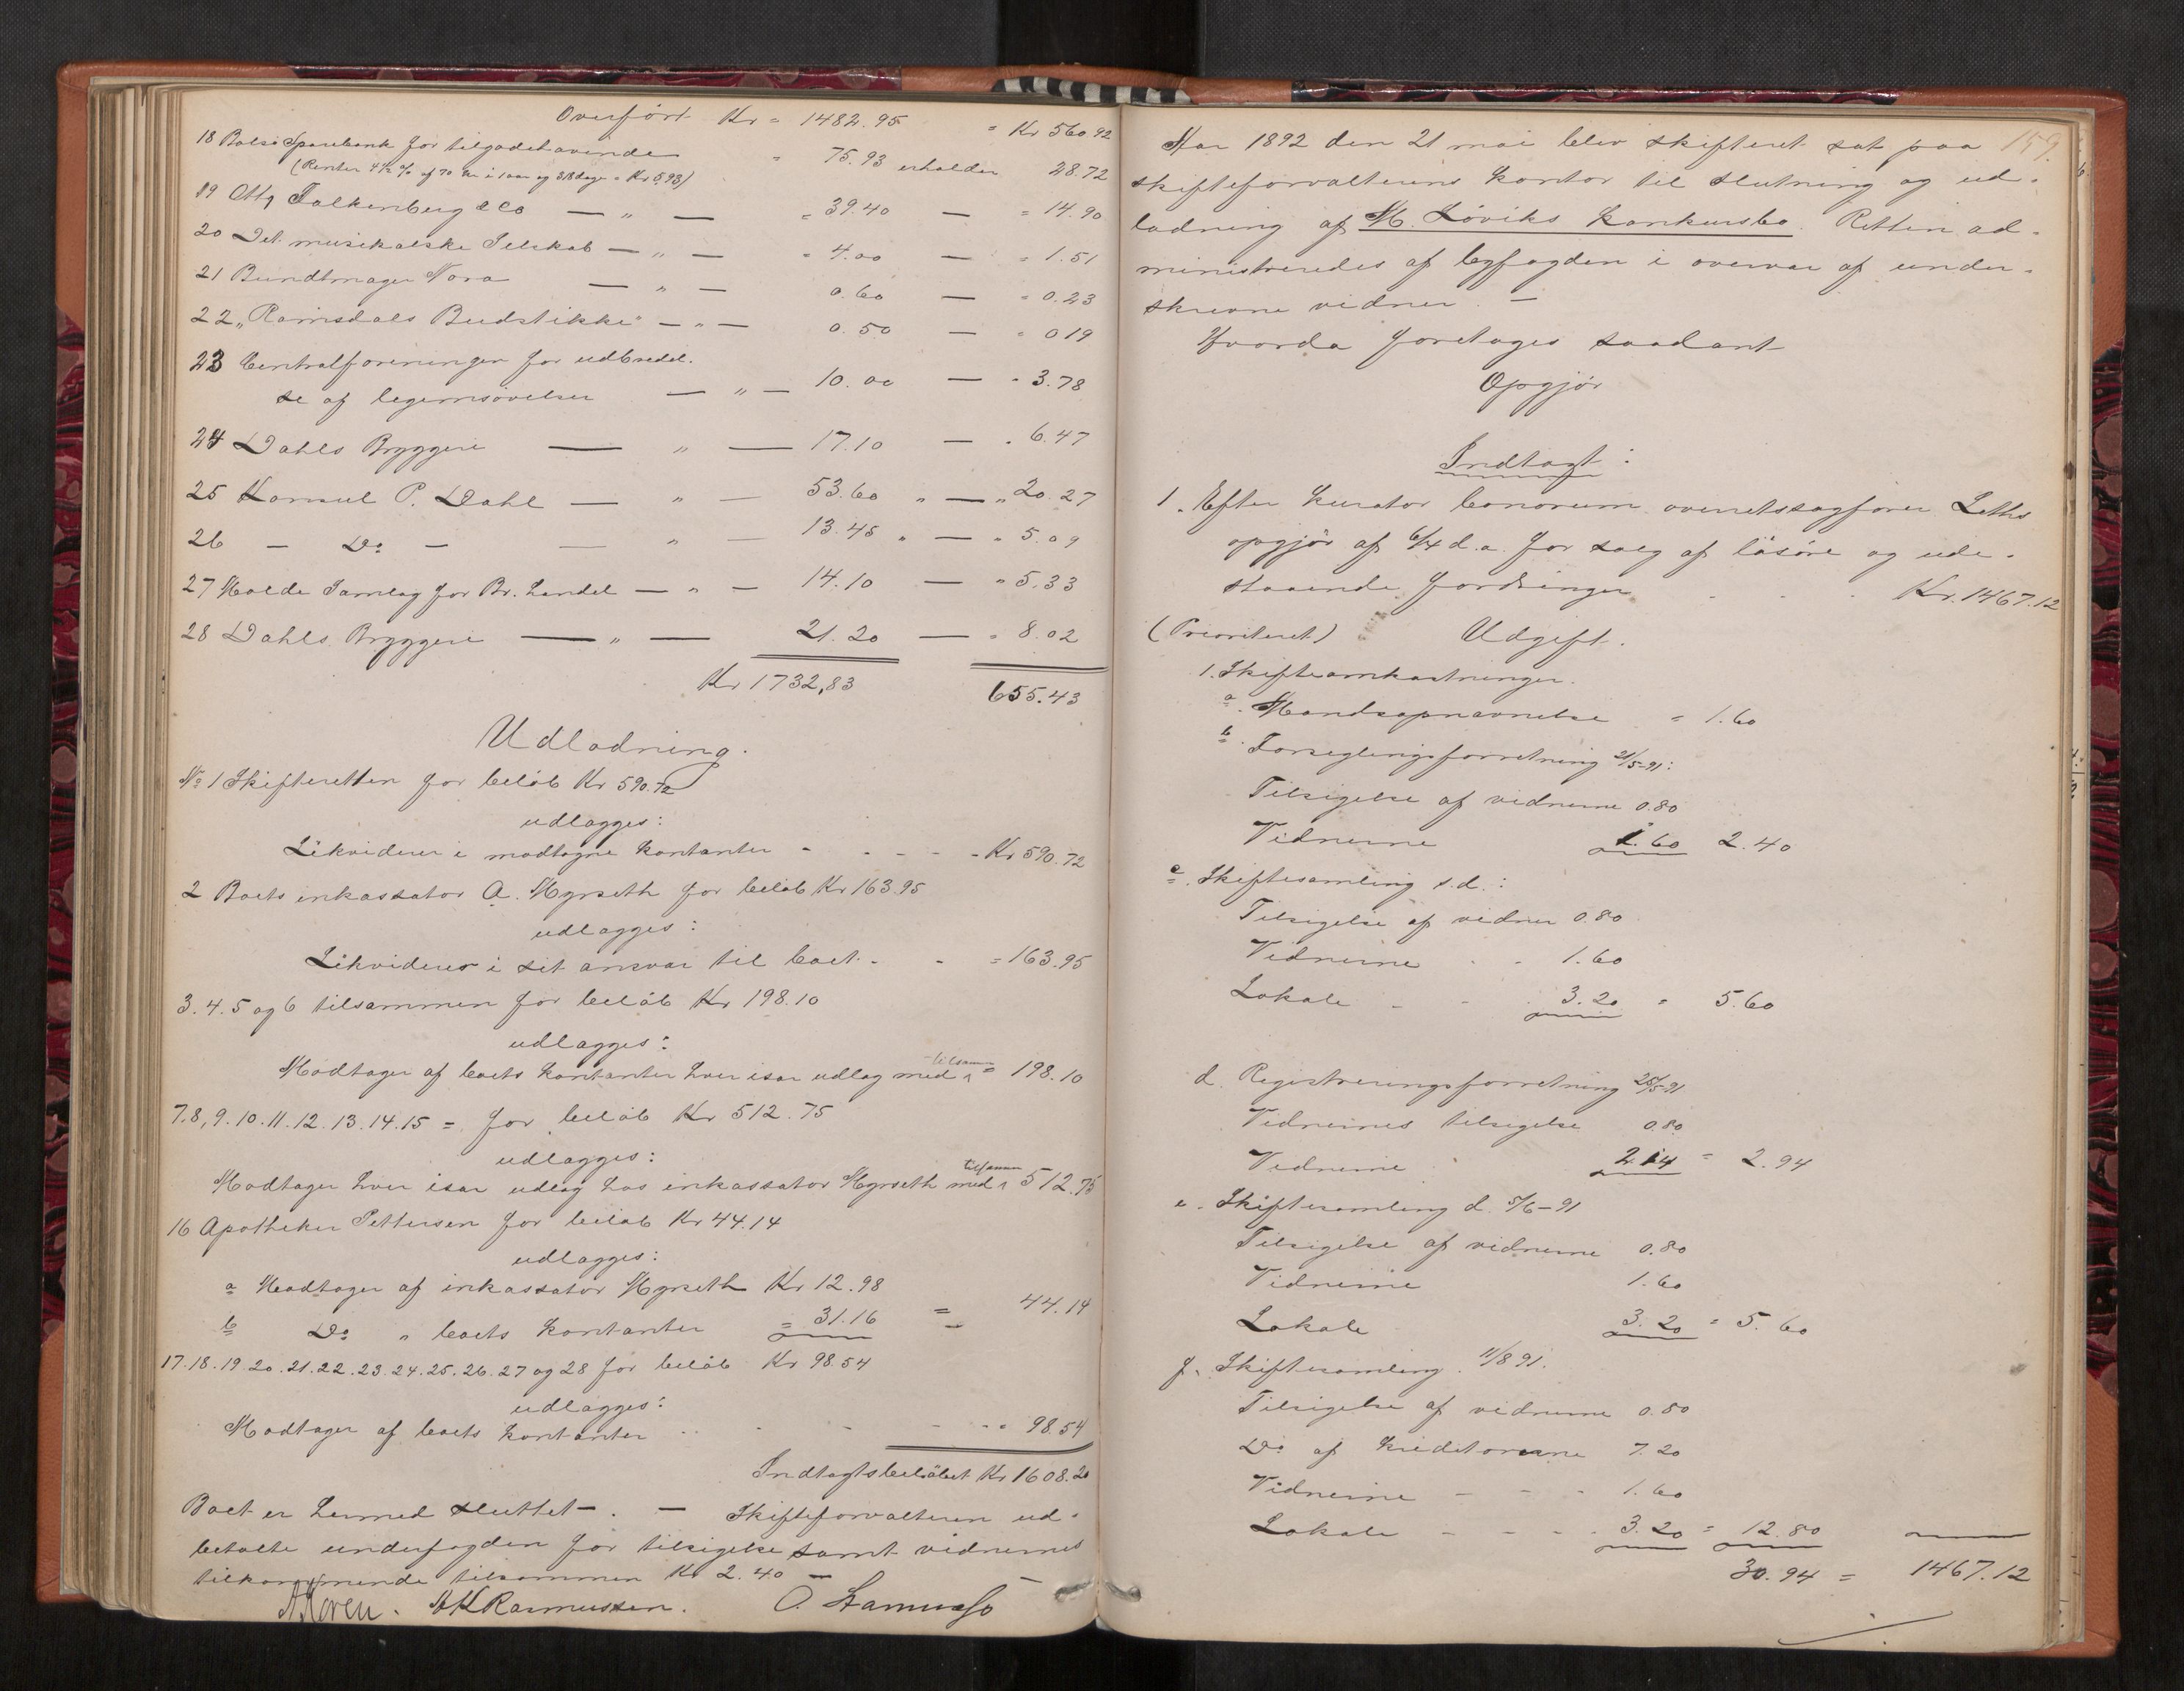 Overført Kr = 1482.95 = Kr 560.92
18 Bolsø Sparebank for tilgodehavende = 75.93 erholder 28.72
(Renter 4½ % af 70 Kr i 1 aar og 318 dage = Kr 5.93)
19 Otto Falkenberg & Co — " — = 39.40 — = 14.90
20 Det musikalske Selskab — " — = 4.00 — = 1.51
21 Bundtmager Nora — " — 0.60 — = 0.23
22 „Romsdals Budstikke" — " — 0.50 — " 019
23 Centralforeningen for udbredel-
se af legemsøvelser — " — 10.00 — " 3.78
24 Dahls Bryggeri — " — 17.10 — " 6.47
25 Konsul P. Dahl — " — 53.60 " — " 20.27
26 — Do — — " — 13.45 " — " 5.09
27 Molde Samlag for Br. handel — " — 14.10 — " 5.33
28 Dahls Bryggeri — " — 21.20 — = 8.02
Kr 1732,83 655.43
Udlodning.
No 1 Skifteretten for beløb Kr 590.72
udlægges:
Likviderer i modtagne kontanter - - - - - Kr 590.72
2 Boets inkassator A. Myrseth for beløb Kr 163.95
udlægges:
Likviderer i sit ansvar til boet - - = 163.95
3. 4. 5 og 6 tilsammen for beløb Kr 198.10
udlægges:
Modtager af boets kontanter hver især udlæg med tilsamm = 198.10
7.8, 9. 10. 11. 12. 13. 14. 15 = for beløb Kr 512.75
udlægges:
Modtager hver især udlæg hos inkassator Myrseth med tilsamm 512.75
16 Apotheker Pettersen for beløb Kr 44.14
udlægges:
a Modtager af inkassator Myrseth Kr 12.98
b Do " boets kontanter = 31.16 = 44.14
17. 18. 19. 20. 21. 22. 23. 24. 25. 26. 27 og 28 for beløb Kr 98.54
udlægges:
Modtager af boets kontanter - - - - = 98.54
Indtægtsbeløbet Kr 1608.20
Boet er hermed sluttet —. — Skifteforvalteren ud-
betalte underfogden for tilsigelse samt vidnernes
tilkommende tilsammen Kr 2.40 —
MKRasmussen.
159.
Aar 1892 den 21 mai blev skifteret sat paa
skifteforvalterens kontor til slutning og ud-
lodning af M. Løviks konkursbo. Retten ad-
ministreredes af byfogden i overvær af under-
skrevne vidner. —
Hvorda foretoges saadant
Opgjør
Indtægt:
1. Efter kurator bonorum overretssagfører Leths
opgjør af 6/4 d.a. for salg af løsøre og ude-
staaende fordringer - - - Kr. 1467.12
(Prioriteret) Udgift.
1. Skifteomkostninger.
a. Mandsopnævnelse = 1.60
b. Forseglingsforretning 21/5-91:
Tilsigelse af vidnerne 0.80
Vidnerne 1.60 2.40
c. Skiftesamling s.d.:
Tilsigelse af vidner 0.80
Vidnerne - - 1.60
Lokale - - 3.20 = 5.60
d. Registreringsforretning 25/5-91
Vidnernes tilsigelse 0.80
Vidnerne 2.14 = 2.94
e. Skiftesamling d. 5/6-91
Tilsigelse af vidnerne 0.80
Vidnerne 1.60
Lokale 3.20 = 5.60
f. Skiftesamling 11/8 91.
Tilsigelse af vidnerne 0.80
Do af kreditorerne 7.20
Vidnerne - - - 1.60
Lokale - - - 3.20 = 12.80
30.94 = 1467.12